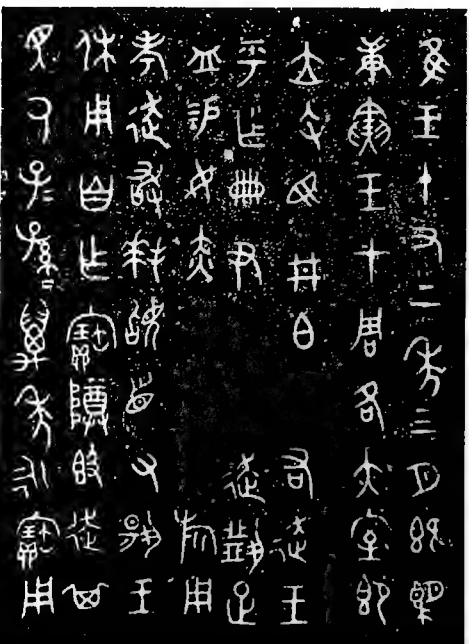 隹王十又二年三月既望
庚寅王才周各大室即
立司馬井白右走王
乎乍冊尹走疋
易女赤旂用
走敢拜𩒨首對揚王
休用自乍寶尊𣪘走其
眔厥子子孫孫萬年永寶用